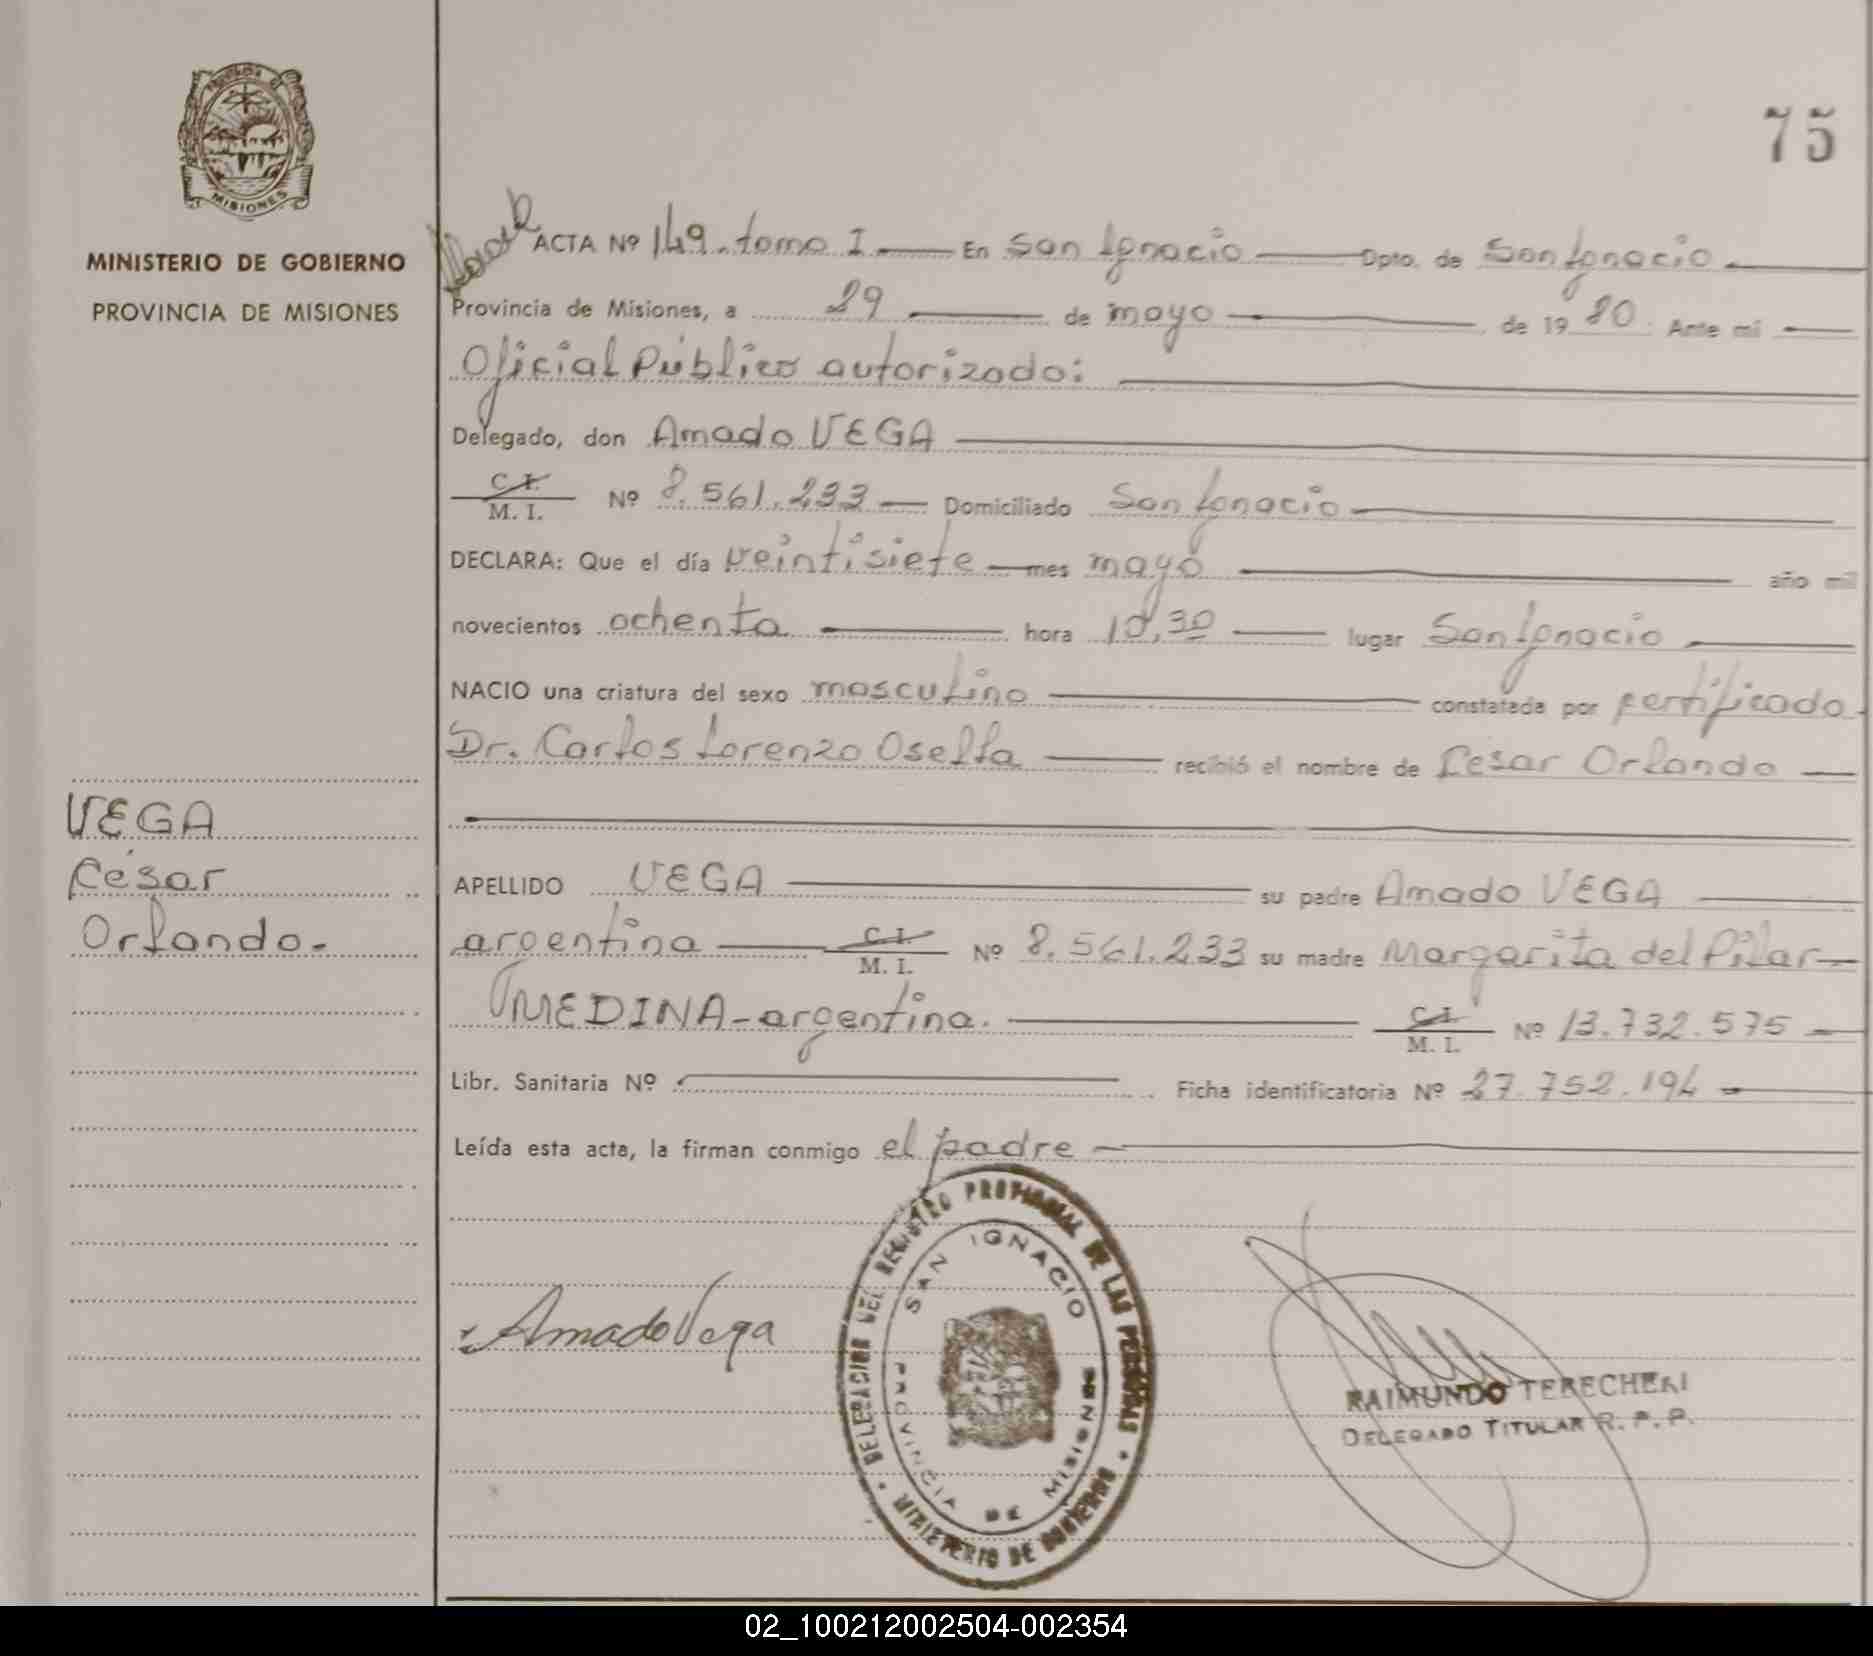 75
MISIONES
MINISTERIO DE GOBIERNO
PROVINCIA DE MISIONES
ACTA Nº 149. tomo I En San Ignacio Dpto. de San Ignacio
Provincia de Misiones, a 29 de mayo de 1980. Ante mi
Oficial Público autorizado:
Delegado, don Amado VEGA
C. I.
M. I. Nº 8.561.233 Domiciliado San Ignacio
DECLARA: Que el día veintisiete mes mayo año mil
novecientos ochenta hora 10,30 lugar San Ignacio
NACIO una criatura del sexo masculino constatada por certificado
Dr. Carlos Lorenzo Osella recibió el nombre de César Orlando
VEGA
César
Orlando.
APELLIDO VEGA su padre Amado VEGA
argentina C. I. M. I. Nº 8.561.233 su madre Margarita del Pilar
MEDINA - argentina. C. I. M. I. Nº 13.732.575
Libr. Sanitaria Nº Ficha identificatoria Nº 27.752.194
Leída esta acta, la firman conmigo el padre
Amado Vega
DELEGACION DEL REGISTRO PROVINCIAL DE LAS PERSONAS
MINISTERIO DE GOBIERNO
SAN IGNACIO
PROVINCIA DE MISIONES
RAIMUNDO
DELEGADO TITULAR R. P. P.
02_100212002504-002354